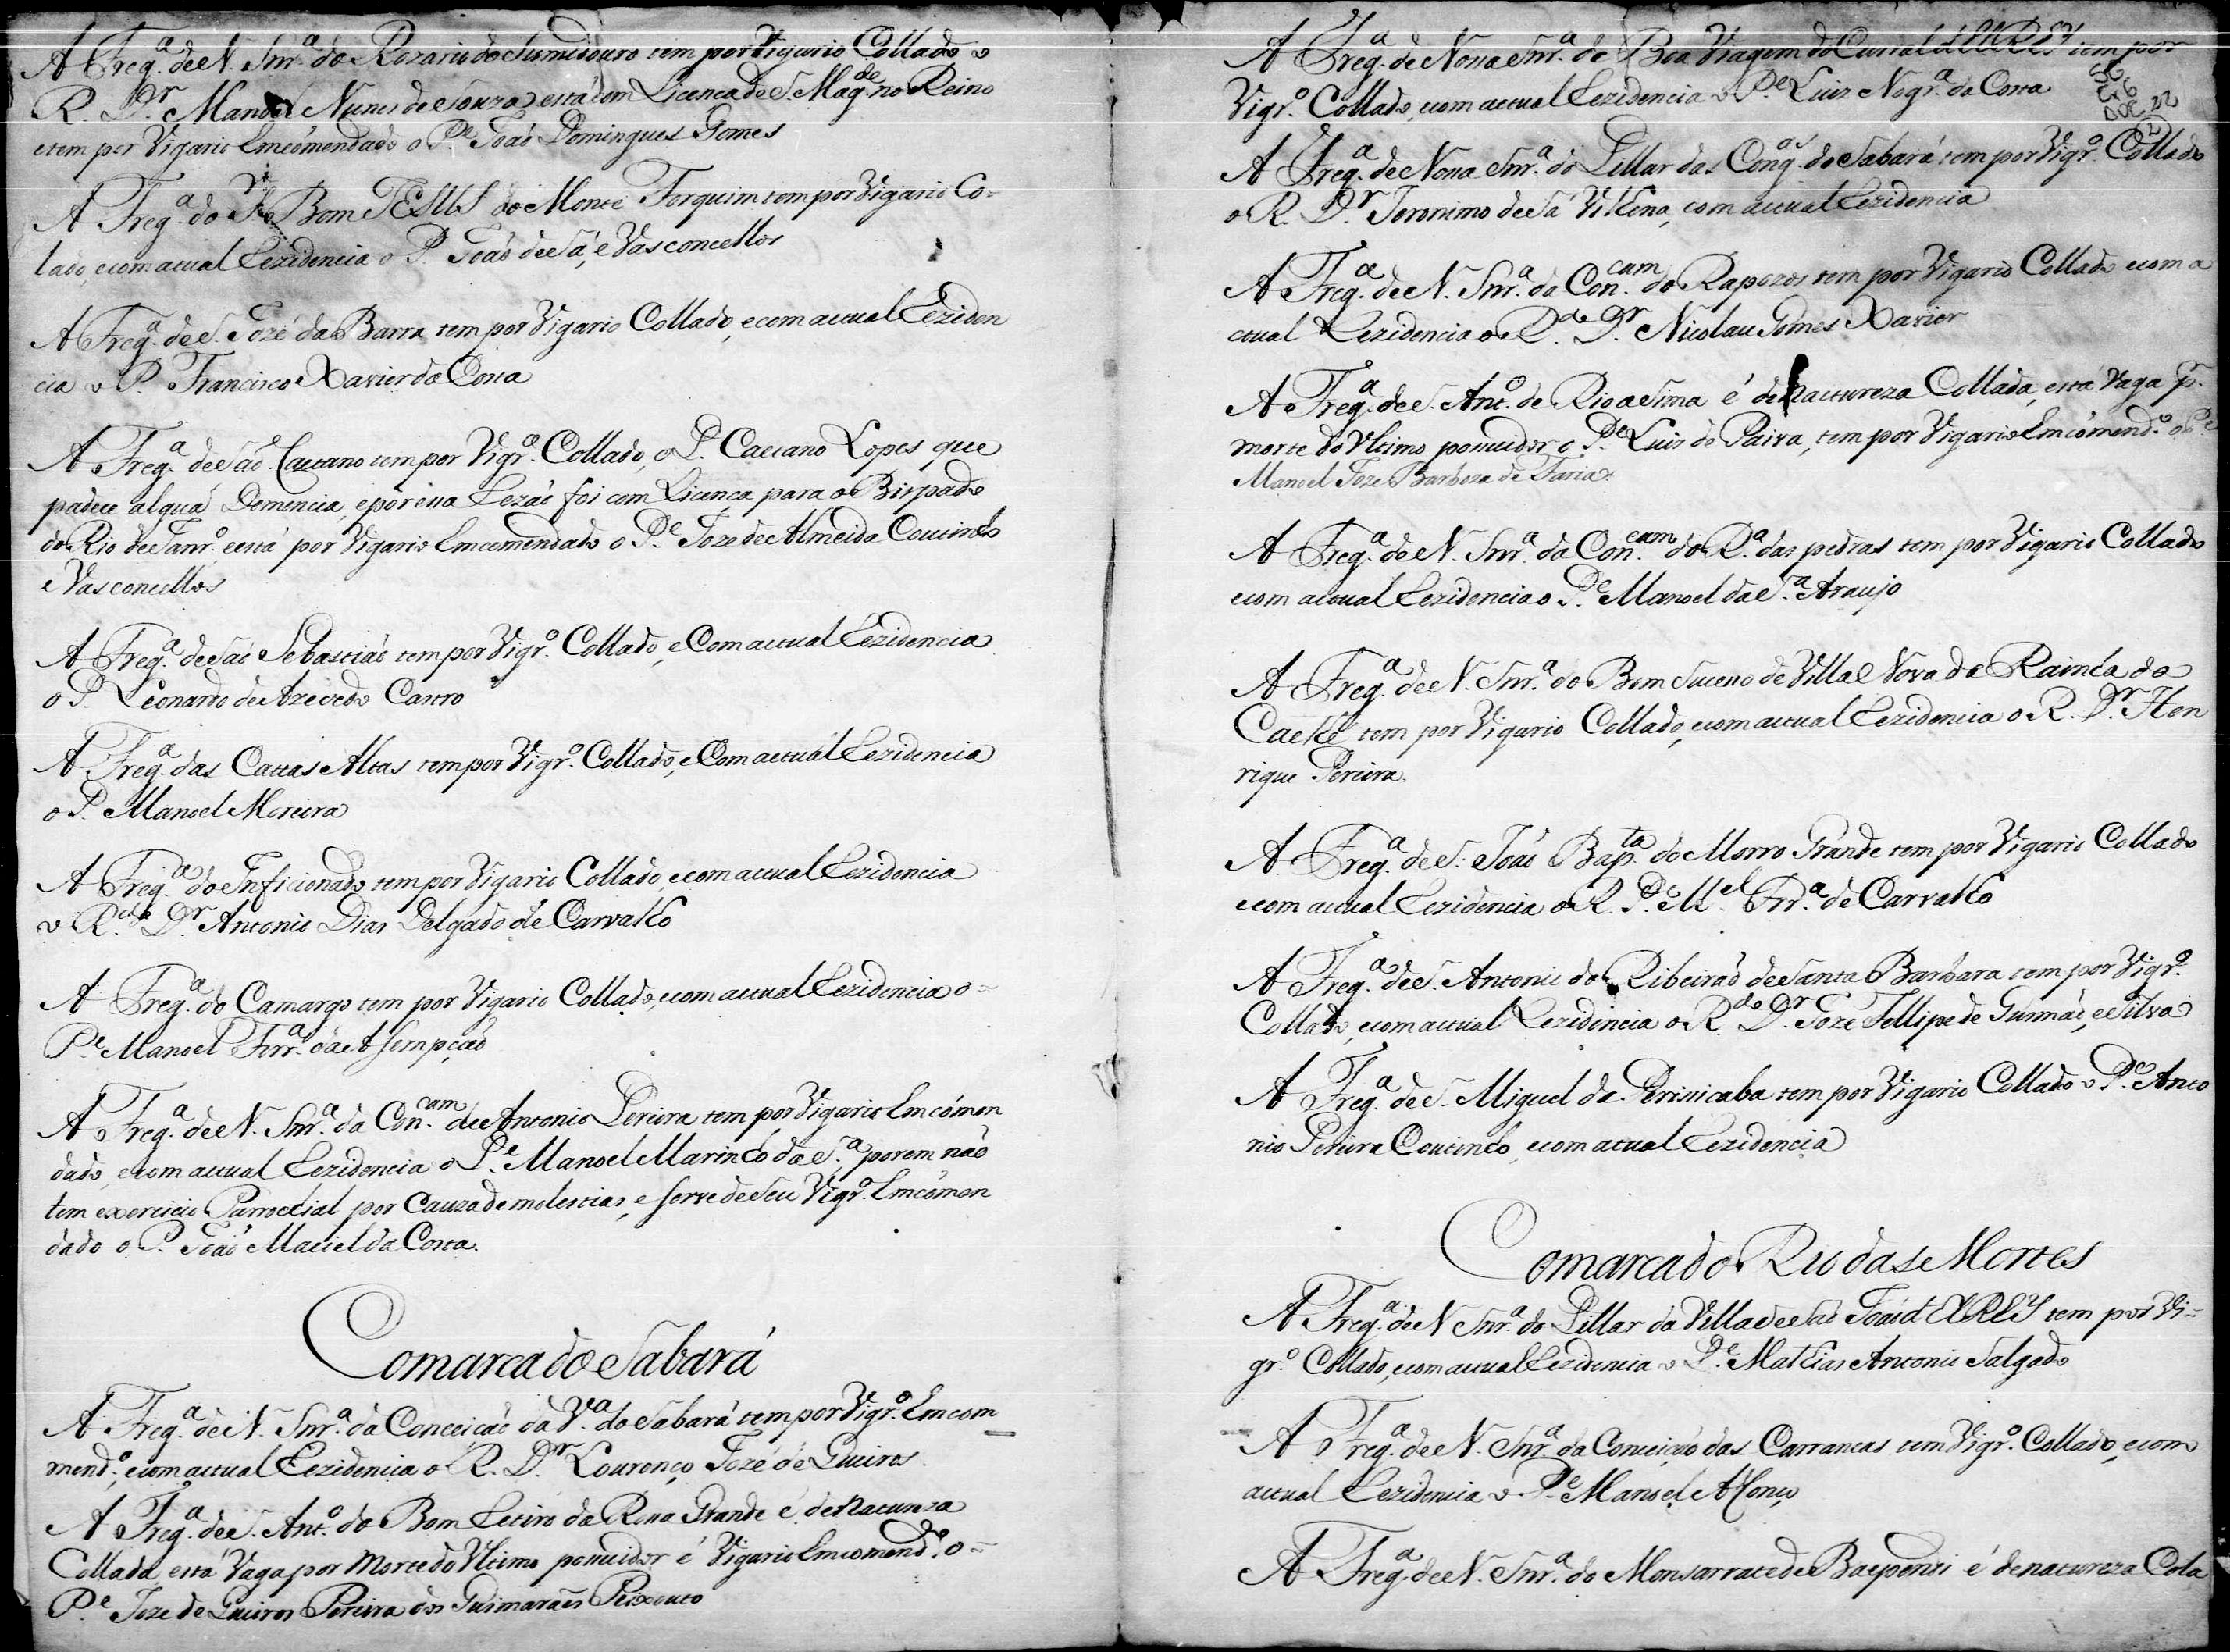 A Freg.ª de N. Snr.ª do Rozario do Sumidouro tem por Vigario Collado o
R. D.r Manoel Nunes de Souza está com Licença de S. Mag.de no Reino
e tem por Vigario Emcõmendado o P.e Joaõ Domingues Gomes
A Freg.ª do S.r Bom JESUS do Monte Forquim tem por Vigario Co-
lado, e com actual Rezidencia o P. Joaõ de Sá, e Vasconcellos
A Freg.ª de S. Jozé da Barra tem por Vigario Collado, e com actual Reziden
cia o P. Francisco Xavier da Costa
A Freg.ª de Saõ Caetano tem por Vigr.º Collado, o P. Caetano Lopes que
padece algua Demencia, e por essa Rezaõ foi com Licença para o Bispado
do Rio de Janr.º e está por Vigario Emcomendado o P.e Joze de Almeida Coutinho
e Vasconcellos
A Freg.ª de Saõ Sebastiaõ tem por Vigr.º Collado, e Com actual Rezidencia
o P. Leonardo de Azevedo Castro
A Freg.ª das Cattas Altas tem por Vigr.º Collado, e Com actual Rezidencia
o P. Manoel Moreira
A Freg.ª do Inficionado tem por Vigario Collado, e com actual Rezidencia
o R.do D.r Antonio Dias Delgado de Carvalho
A Freg.ª do Camargo tem por Vigario Collado, e com actual Rezidencia o-
P.e Manoel Ferr.ª da Assempçaõ
A Freg.ª de N. Snr.ª da Con.cam de Antonio Pereira tem por Vigario Emcõmen
dado, e com actual Rezidencia o P.e Manoel Marinho da S.ª porem naõ
tem exercicio Parrochial por Cauza de molestias, e serve de Seu Vigr.º Emcõmen
dado o P. Joaõ Maciel da Costa.
Comarca do Sabará
A Freg.ª de N. Snr.ª da Conceiçaõ da V.ª do Sabará tem por Vigr.º Emcom
mend.º, e com actual Rezidencia o R. D.r Lourenço Jozé de Queiros
A Freg.ª de S. Ant.º do Bom Retiro da Rossa Grande é de natureza
Collada está Vaga por Morte do Ultimo possuidor é Vigario Emcomend.º o-
P.e Joze de Queiros Pereira dos Guimaraẽs Peixouto
A Freg.ª de Nossa Snr.ª da Boa Viagem do Curral d'ELREY tem por
Vigr.º Collado, e com actual Rezidencia o P.e Luiz Nogr.ª da Costa
A Freg.ª de Nossa Snr.ª do Pillar das Cong.as do Sabará tem por Vigr.º Collado
o R. D.r Jeronimo de Sá Vilhena, com actual Rezidencia
A Freg.ª de N. Snr.ª da Con.cam do Rapozos tem por Vigario Collado e com a
ctual Rezidencia o R.do D.r Nicolau Gomes Xavier
A Freg.ª de S. Ant.º de Rio a Sima é de nactureza Collada, está Vaga p.
morte do Ultimo possuidor o P.e Luis de Paiva, tem por Vigario Emcõmend.º o P.e
Manoel Joze Barboza de Faria
A Freg.ª de N. Snr.ª da Con.cam do R.ª das pedras tem por Vigario Collado
e com actual Rezidencia o P.e Manoel da S.ª Araujo
A Freg.ª de N. Snr.ª do Bom Sucesso de Villa Nova da Rainha do
Caethé tem por Vigario Collado, e com actual Rezidencia o R. D.r Hen
rique Pereira
A Freg.ª de S. Joaõ Bap.ta do Morro Grande tem por Vigario Collado
e com actual Rezidencia o R. P.e M.el Frr.ª de Carvalho
A Freg.ª de S. Antonio do Ribeiraõ de Santa Barbara tem por Vigr.º
Collado, e com actual Rezidencia o R.do D.r Joze Fellipe de Gusmaõ, e Silva
A Freg.ª de S. Miguel da Perisicaba tem por Vigario Collado o P.e Anto
nio Pereira Coutinho, e com actual Rezidencia
Comarca do Rio das Mortes
A Freg.ª de N Snr.ª do Pillar da Villa de Saõ Joaõ d'ELREY tem por Vi-
gr.º Collado, e com actual Rezidencia o P.e Mathias Antonio Salgado
A Freg.ª de N. Snr.ª da Conceiçaõ das Carrancas tem Vigr.º Collado, e com
actual Rezidencia o P.e Manoel Affonço
A Freg.ª de N. Snr.ª do Monsarrate de Baependi é de natureza Cola